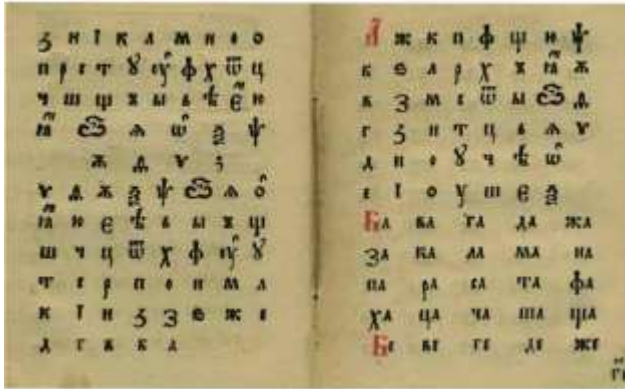 ꙁ и ї к л м н о
п р с т ꙋ ѹ ф х ѿ ц
ч ш щ ъ ы ь ѣ є ю
ꙗ ѧ ѡ ѯ ѱ
ѫ ѵ
ѵ ѫ ѯ ѱ ѧ ѡ
ꙗ ю є ѣ ь ы ъ щ
ш ч ц ѿ х ф ѹ ꙋ
т с р п о н м л
к ї и ꙁ з ѕ ж е
д г в б а
А ж к п ф щ ю ѱ
б ѕ л р х ъ ꙗ ѫ
в з м с ѿ ы
г ꙁ н т ц ь ѧ ѵ
д и о ꙋ ч ѣ ѡ
е ї о у ш є ѯ
Ба ва га да жа
за ка ла ма на
па ра са та фа
ха ца ча ша ща
Бе ве ге де же